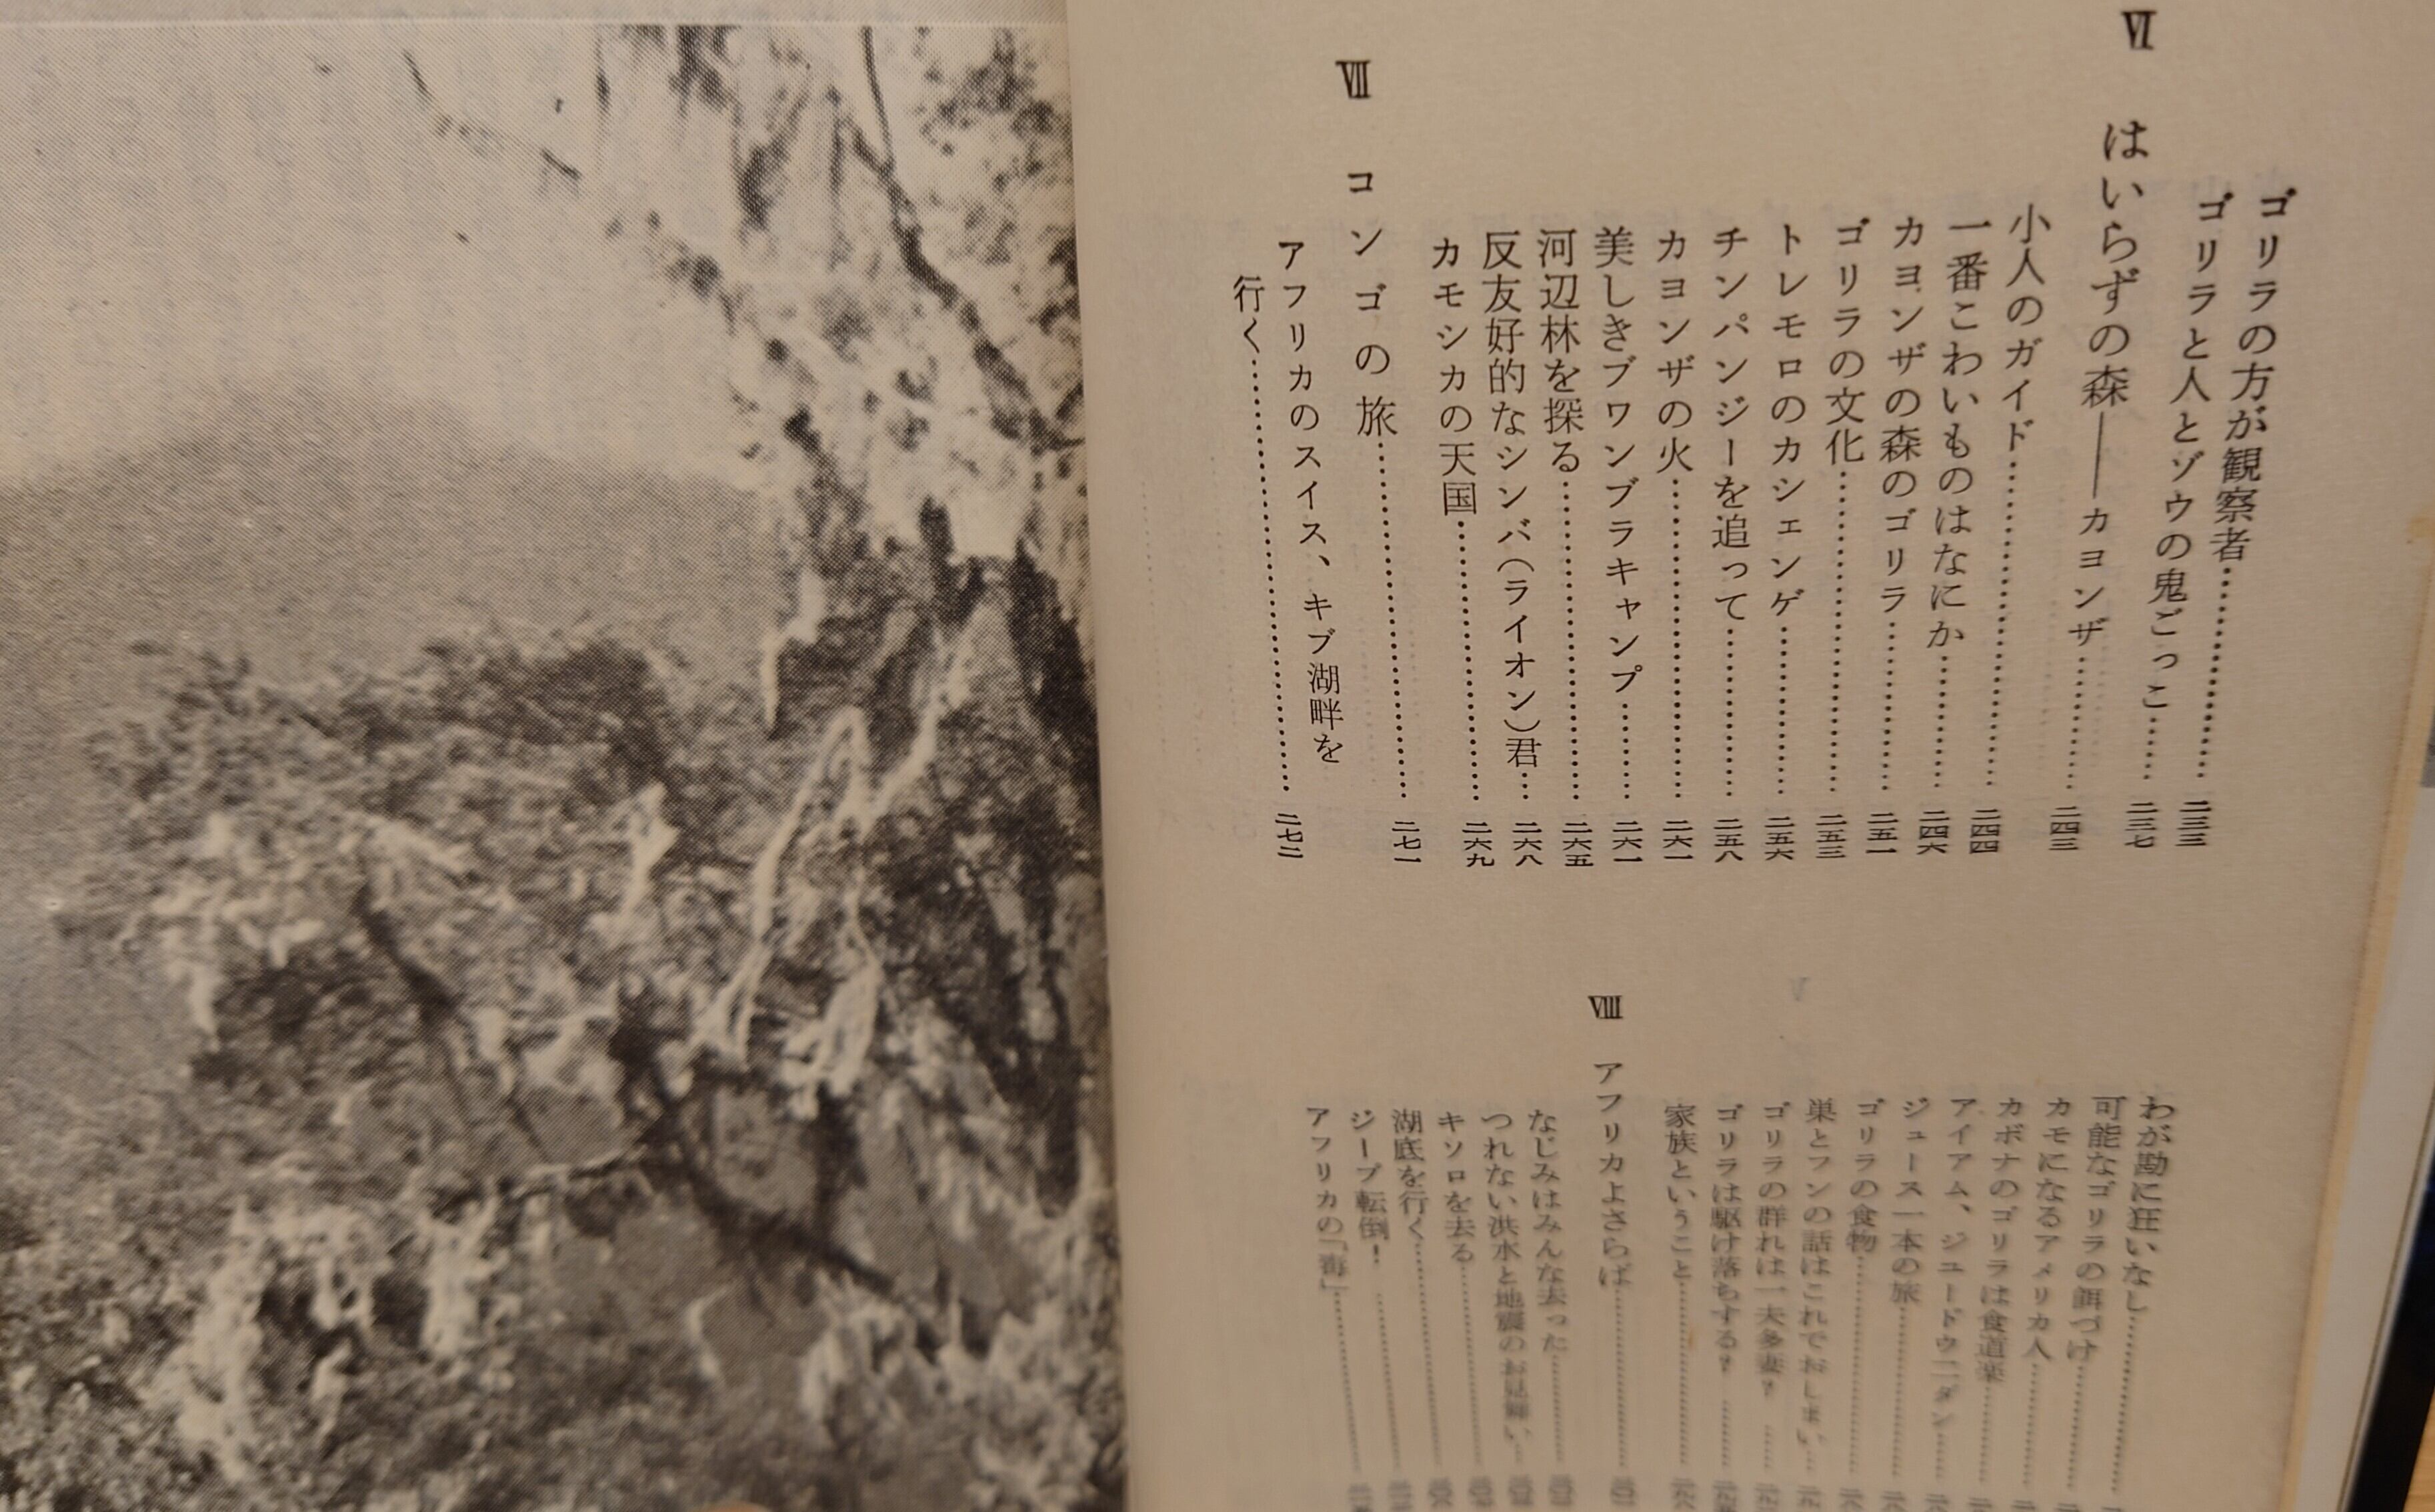 ゴリラの方が観察者……二三三
ゴリラと人とゾウの鬼ごっこ……二三七
Ⅵ はいらずの森――カヨンザ……二四三
小人のガイド……二四四
一番こわいものはなにか……二四六
カヨンザの森のゴリラ……二五一
ゴリラの文化……二五三
トレモロのカシェンゲ……二五六
チンパンジーを追って……二五八
カヨンザの火……二六一
美しきブワンブラキャンプ……二六一
河辺林を探る……二六五
反友好的なシンバ(ライオン)君……二六八
カモシカの天国……二六九
Ⅶ コンゴの旅……二七一
アフリカのスイス、キブ湖畔を
行く……二七二
わが勘に狂いなし……
可能なゴリラの餌づけ……
カモになるアメリカ人……
カボナのゴリラは食道楽……
アイアム、ジュードウ二ダン……
ジュース一本の旅……
ゴリラの食物……
巣とフンの話はこれでおしまい……
ゴリラの群れは一夫多妻?……
ゴリラは駆け落ちする?……
家族ということ……
Ⅷ アフリカよさらば……
なじみはみんな去った……
つれない洪水と地震のお見舞い……
キソロを去る……
湖底を行く……
ジープ転倒!……
アフリカの「毒」……